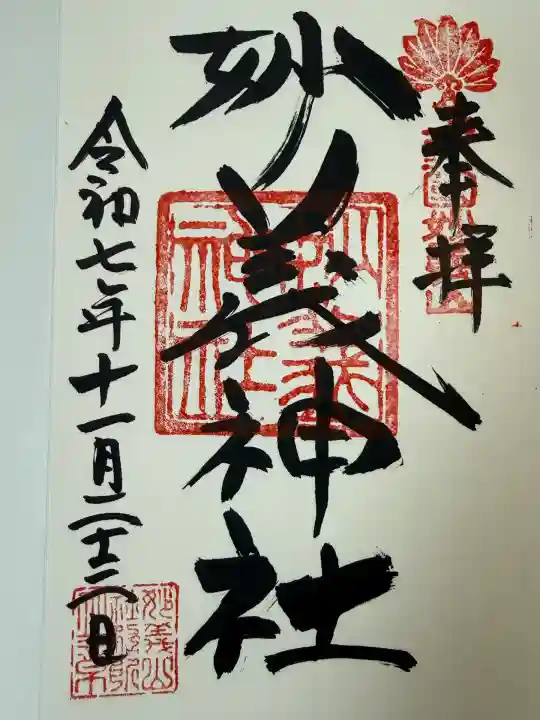 奉拝
妙義神社
令和七年十一月二十二日